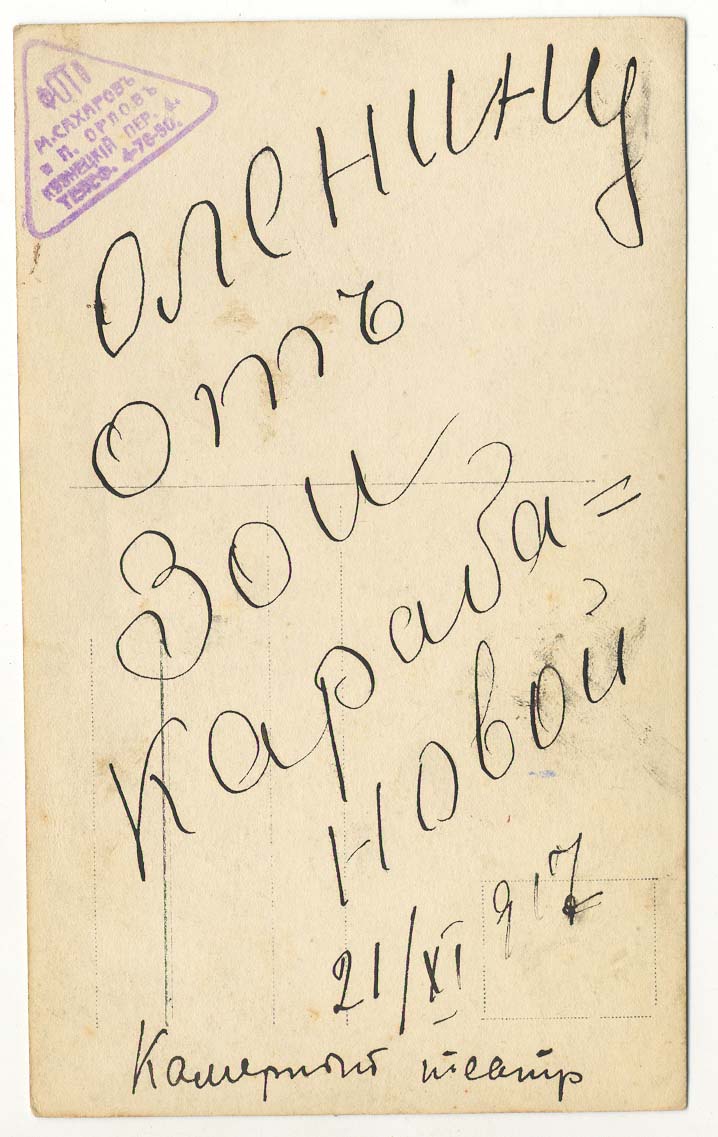 ФОТО
М. САХАРОВЪ
и П. ОРЛОВЪ
КУЗНЕЦКІЙ ПЕР., 4.
ТЕЛЕФ. 4-76-90.
Оленину
отъ
Зои
Караба=
новой
21/XI 917
Камерный театр